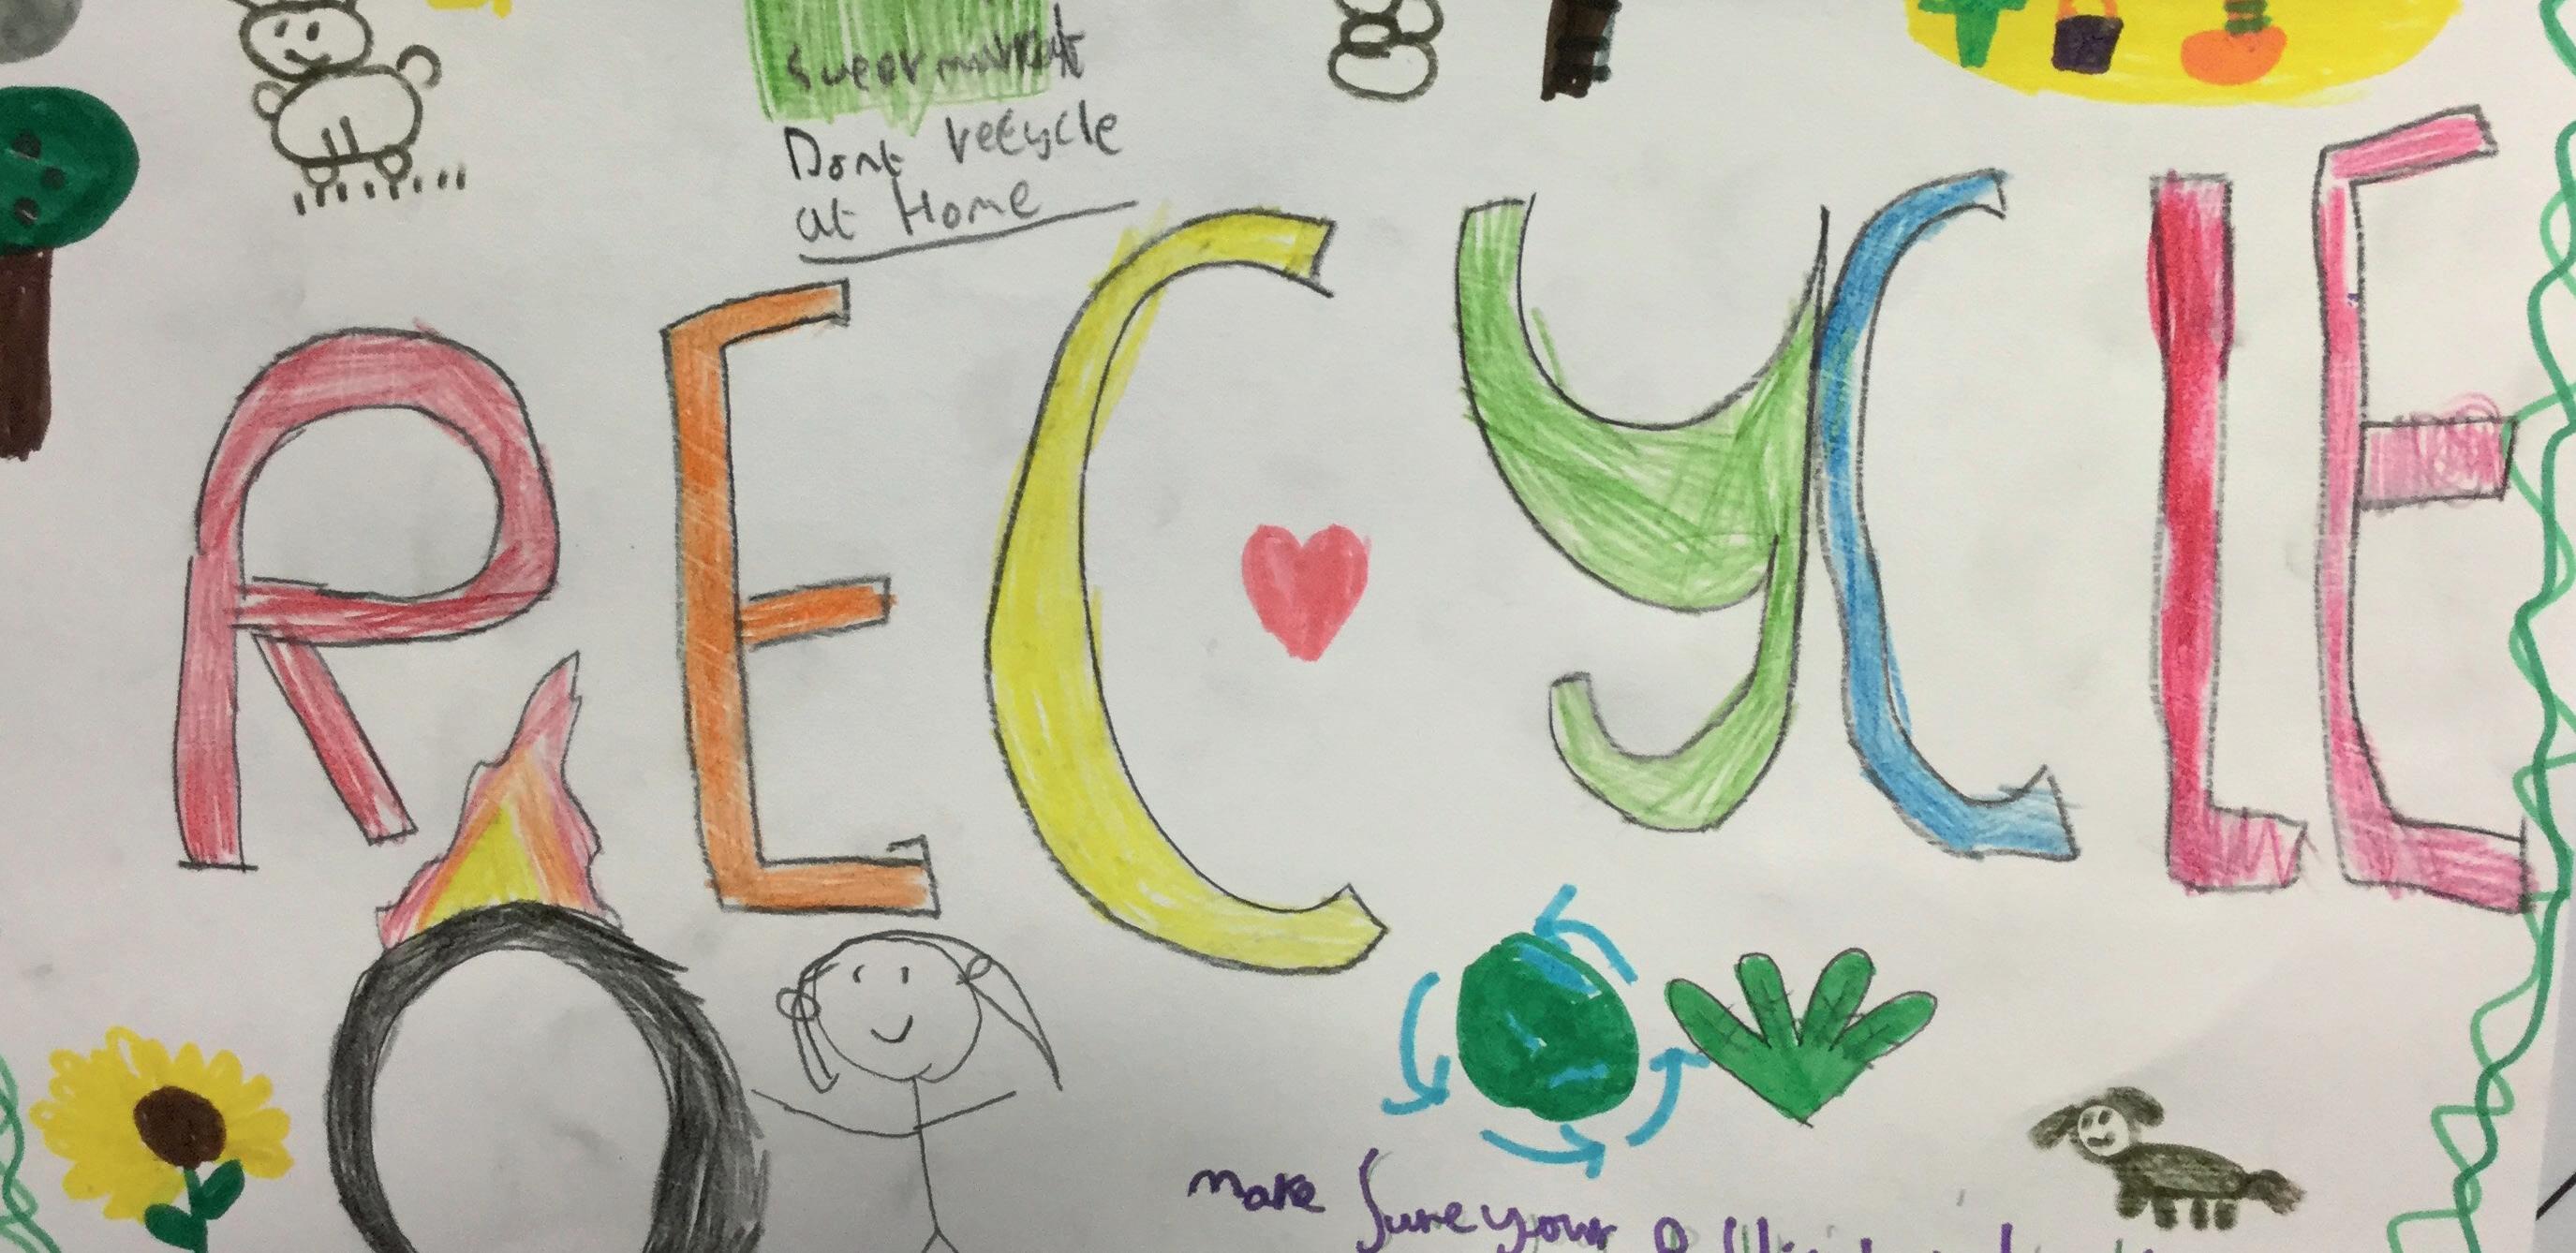 sueermarket
Dont recycle
at Home
RECYCLE
make Sure your